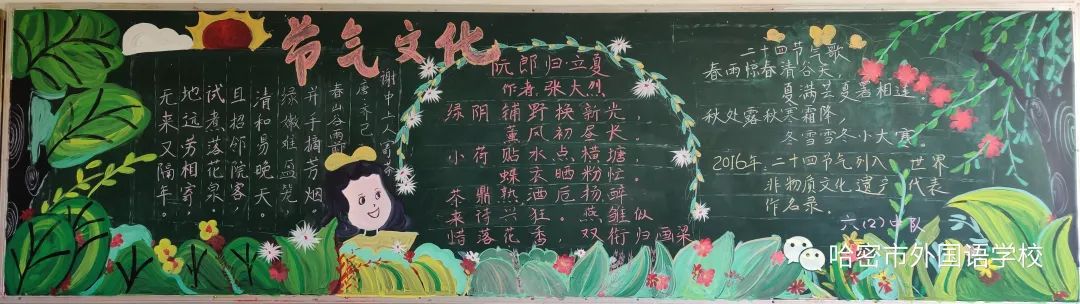 节气文化
谢中上人寄茶
唐·齐己
春山谷雨前
并手摘芳烟。
绿嫩难盈笼,
清和易晚天。
且招邻院客,
试煮落花泉
地远劳相寄,
无来又隔年。
阮郎归·立夏
作者:张大烈
绿阴铺野换新光,
薰风初昼长。
小荷贴水点横塘,
蝶衣晒粉忙。
茶鼎熟,酒卮扬,醉
来诗兴狂。燕雏似
惜落花香,双衔归画梁
二十四节气歌
春雨惊春清谷天,
夏满芒夏暑相连。
秋处露秋寒霜降,
冬雪雪冬小大寒。
2016年,二十四节气列入 世界
非物质文化遗产 代表
作名录。
六(2)中队
哈密市外国语学校